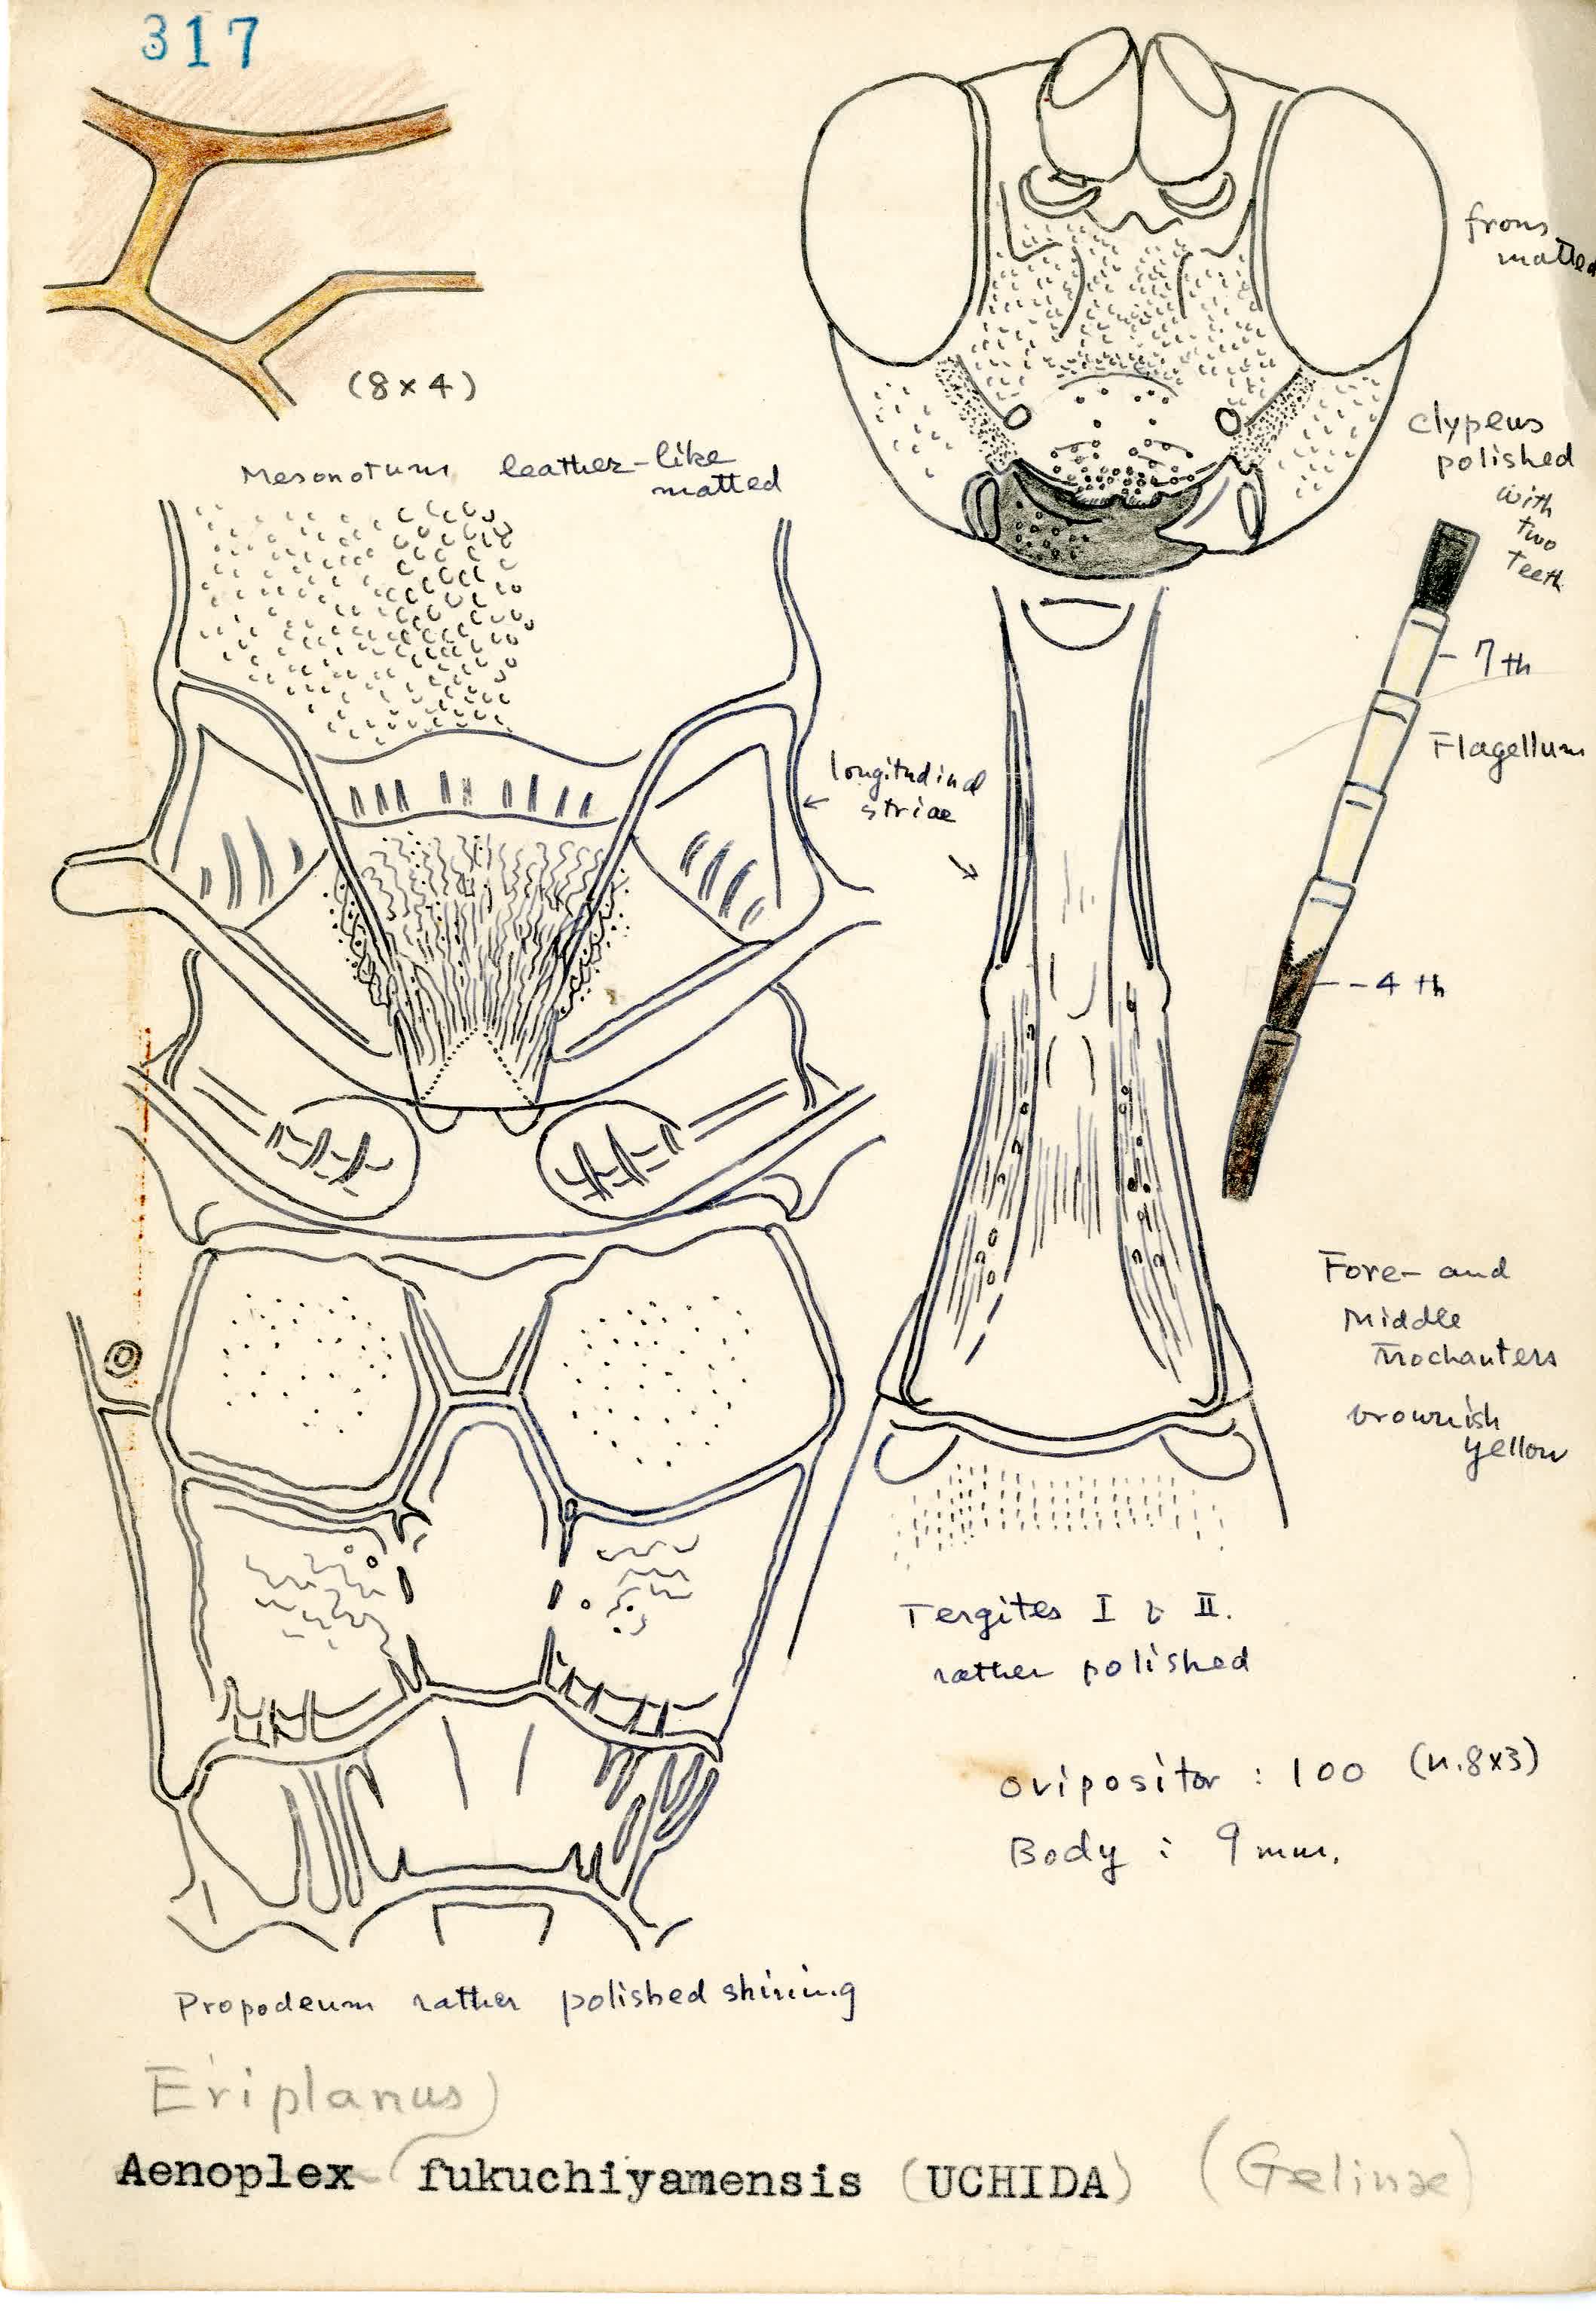 317
(8×4)
Mesonotum leather-like
matted
frons
matted
clypeus
polished
with
two
teeth
7th
Flagellum
longitudinal
striae
4th
Fore- and
Middle
Trochanters
brownish
yellow
Tergites I & II.
rather polished
ovipositor : 100 (n.8×3)
Body : 9 mm.
Propodeum rather polished shining
Eriplanus
Aenoplex fukuchiyamensis (UCHIDA) (Gelinae)